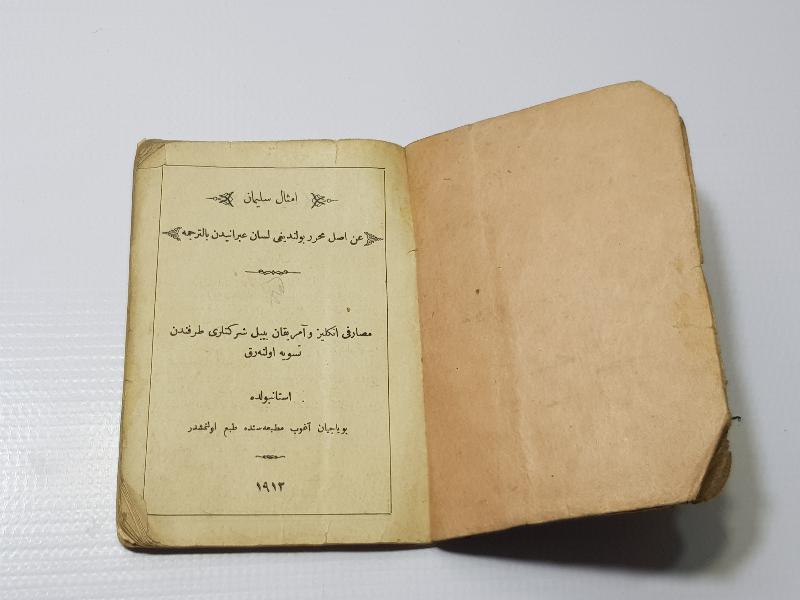 امثال سلیمان
عن اصل محرر بولندیغی لسان عبرانیدن بالترجمه
مصارفی انکلیز و آمریقان بیبل شرکتلری طرفندن
تسویه اولنه‌رق
استانبولده
بویاجیان آغوب مطبعه‌سنده طبع اولنمشدر
١٩١٢